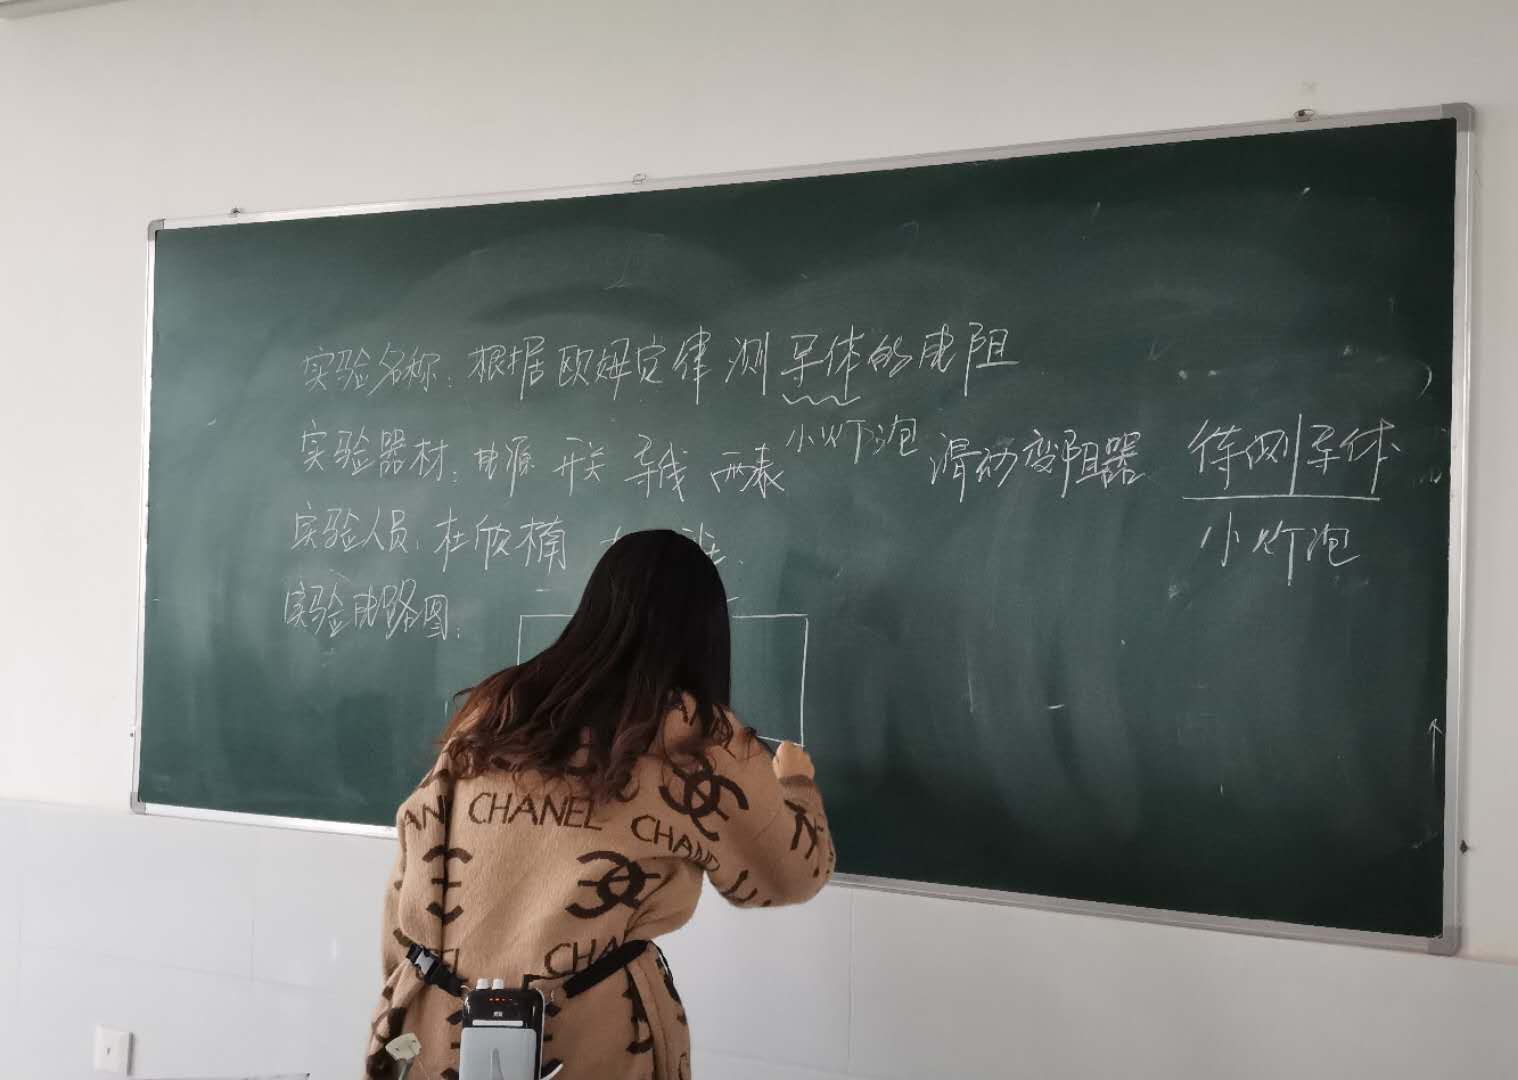 实验名称：根据欧姆定律测导体的电阻
实验器材：电源 开关 导线 两表 小灯泡 滑动变阻器 待测导体
小灯泡
实验人员：杜欣楠
实验电路图：
CHANEL
CHAN
CHA